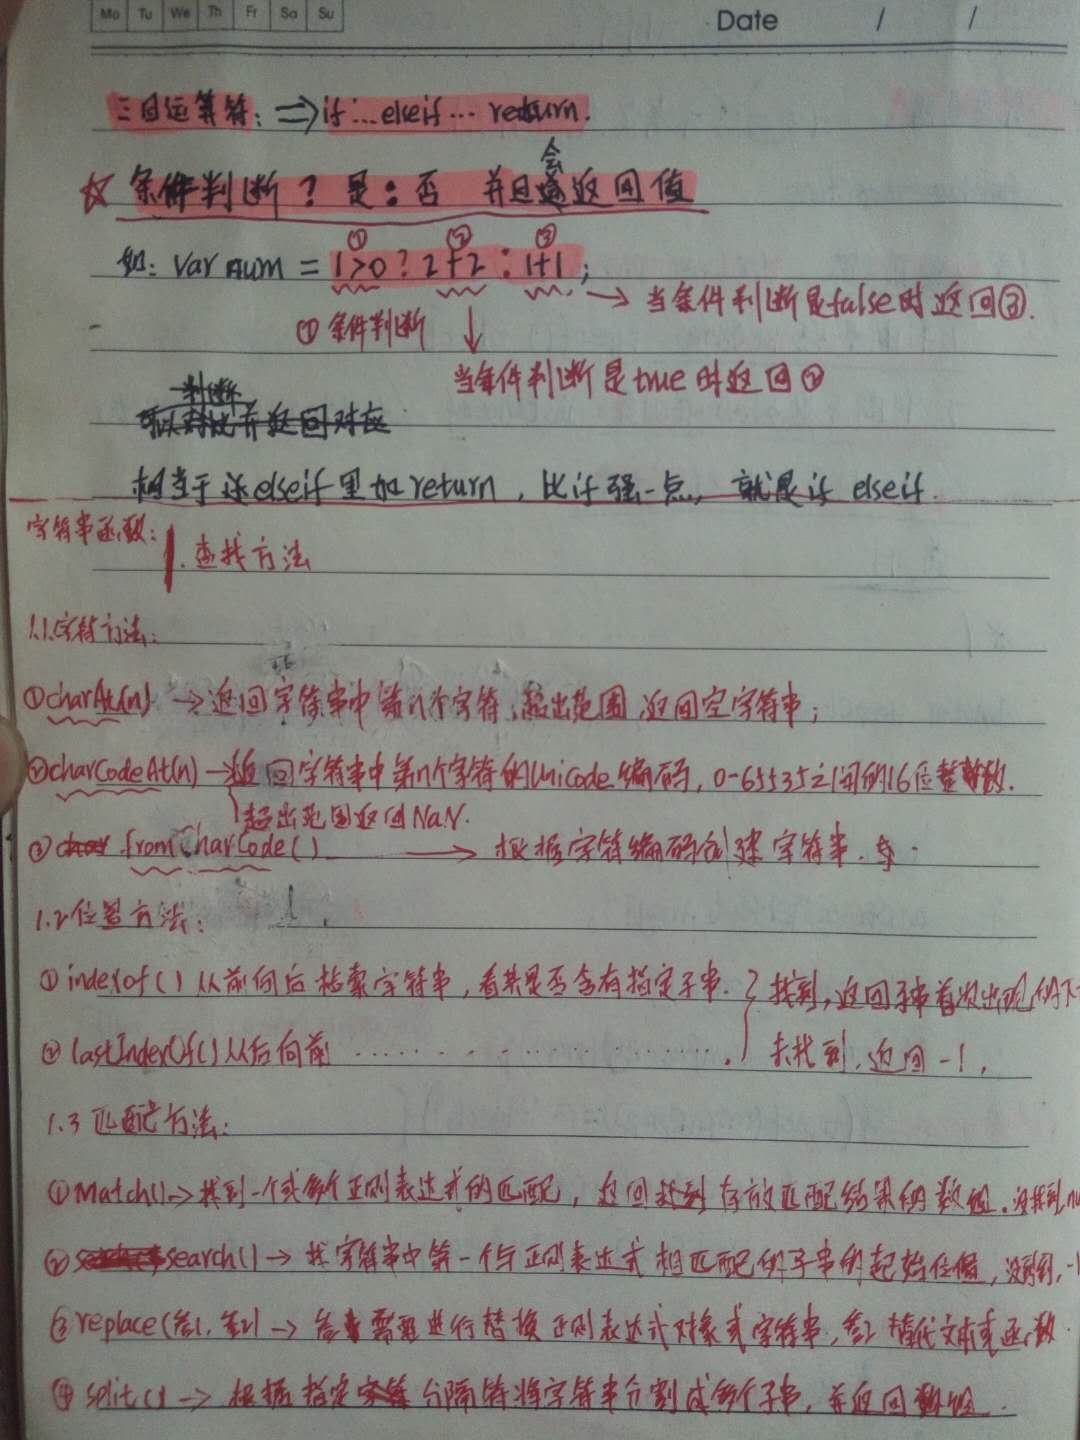 Mo Tu We Th Fr Sa Su
Date / /
三目运算符: ⇒ if...elseif... return.
☆ 条件判断 ? 是 : 否 并且会返回值
① ② ③
如: var num = 1>0 ? 2+2 : 1+1 ;
→ 当条件判断是false时返回③.
① 条件判断
当条件判断是true时返回②
判断
可以对比并返回对应
相当于 elseif 里加 return , 比 if 强一点, 就是 if elseif .
字符串函数:
1. 查找方法
1.1.字符方法:
①charAt(n) →返回字符串中第n个字符,超出范围,返回空字符串;
②charCodeAt(n)→返回字符串中第n个字符的Unicode编码, 0-65535之间的16位整数.
超出范围返回NaN.
③ fromCharCode() → 根据字符编码创建字符串.
1.2位置方法:
① indexof() 从前向后检索字符串, 看其是否含有指定子串. } 找到, 返回子串首次出现的下
② lastIndexOf() 从后向前 ............ 未找到, 返回 -1,
1.3 匹配方法:
① Match()→找到一个或多个正则表达式的匹配, 返回找到存放匹配结果的数组. 没找到nu
② search() → 找字符串中第一个与正则表达式相匹配的子串的起始位置, 没找到, -1
③ replace(参1, 参2) → 参1 需要进行替换正则表达式对象或字符串, 参2 替代文本或函数.
④ split() → 根据指定分隔符将字符串分割成多个子串, 并返回数组.